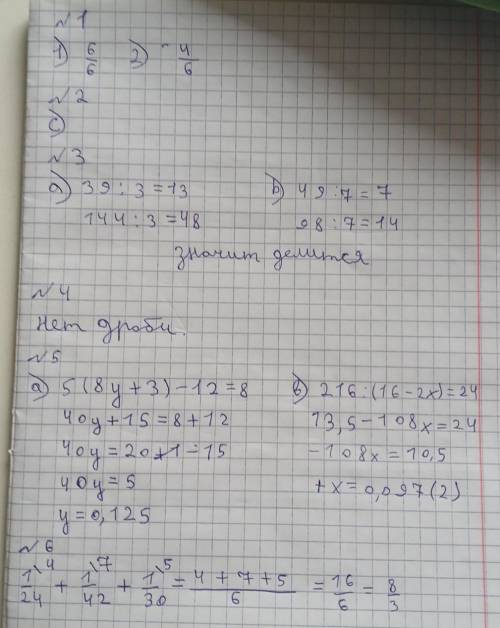 №1
1) 6/6 2) - 4/6
№2
c)
№3
a) 39 : 3 = 13 b) 49 : 7 = 7
144 : 3 = 48 98 : 7 = 14
значит делится
№4
Нет дроби.
№5
a) 5(8y + 3) - 12 = 8 b) 216 : (16 - 2x) = 24
40y + 15 = 8 + 12 13,5 - 108x = 24
40y = 20 - 15 - 108x = 10,5
40y = 5 + x = 0,097(2)
y = 0,125
№6
1/24 \4 + 1/42 \7 + 1/30 \5 = 4 + 7 + 5 / 6 = 16/6 = 8/3